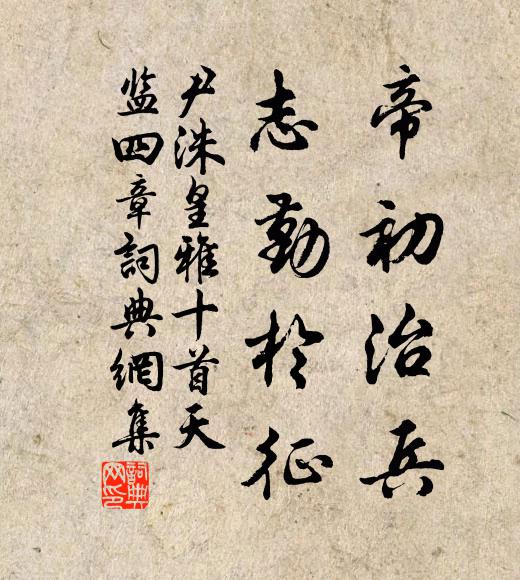 帝初治兵
志勤於征
尹洙皇雅十首天
监四章詞典網集
詞典
网印